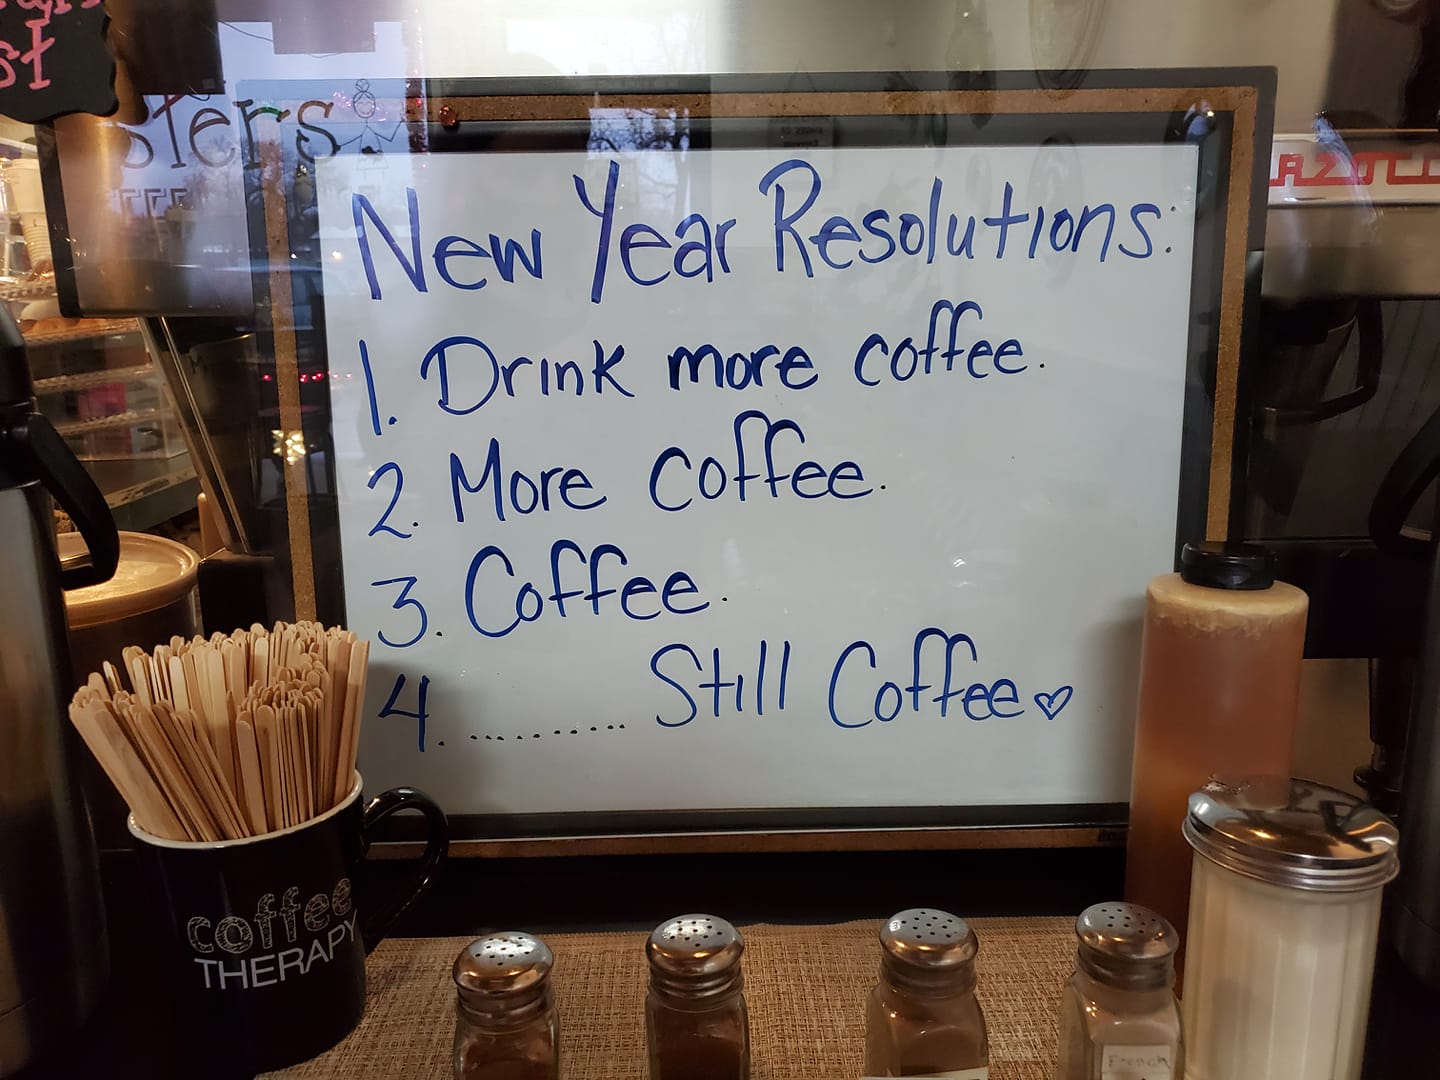 st
sters
New Year Resolutions:
1. Drink more coffee.
2. More coffee.
3. Coffee.
4. .......... Still Coffee♡
coffee
THERAPY
French